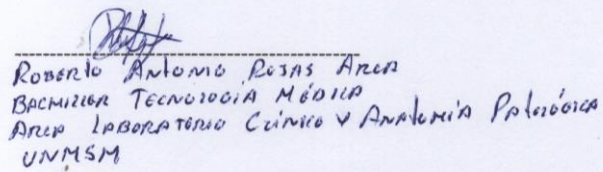 Roberto Antonio Rojas Arca
Bachiller Tecnología Médica
Area Laboratorio Clínico y Anatomía Patológica
UNMSM